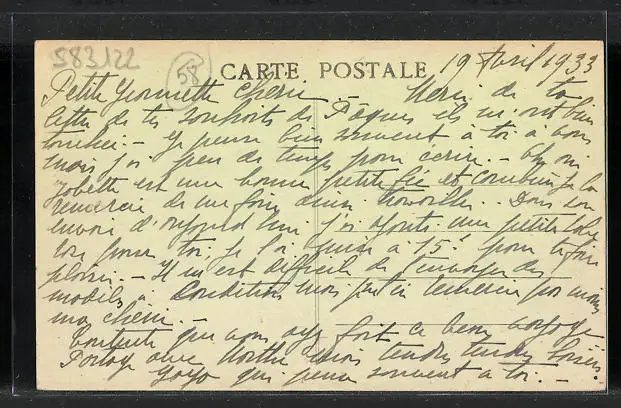 583122
58
CARTE POSTALE
19 Avril 1933
Petite Yonnette Chérie - Merci de ta
lettre de tes souhaits de Pâques ils m'ont bien
touchée. - Je pense bien souvent à toi à vous
mais j'ai peu de temps pour écrire. -
est une bonne petite fée et combien je la
remercie de me faire deux
envoi d'aujourd'hui j'ai ajouté une petite
pour toi, je l'ai à 15 pour te faire
plaisir. - Il m'est difficile de t'envoyer des
modèles à Condition mais
ma chérie. -
Contente que vous ayez fait ce beau voyage
Partage avec Marthe mes tendres tendres baisers
Yoyo qui pense souvent à toi. -